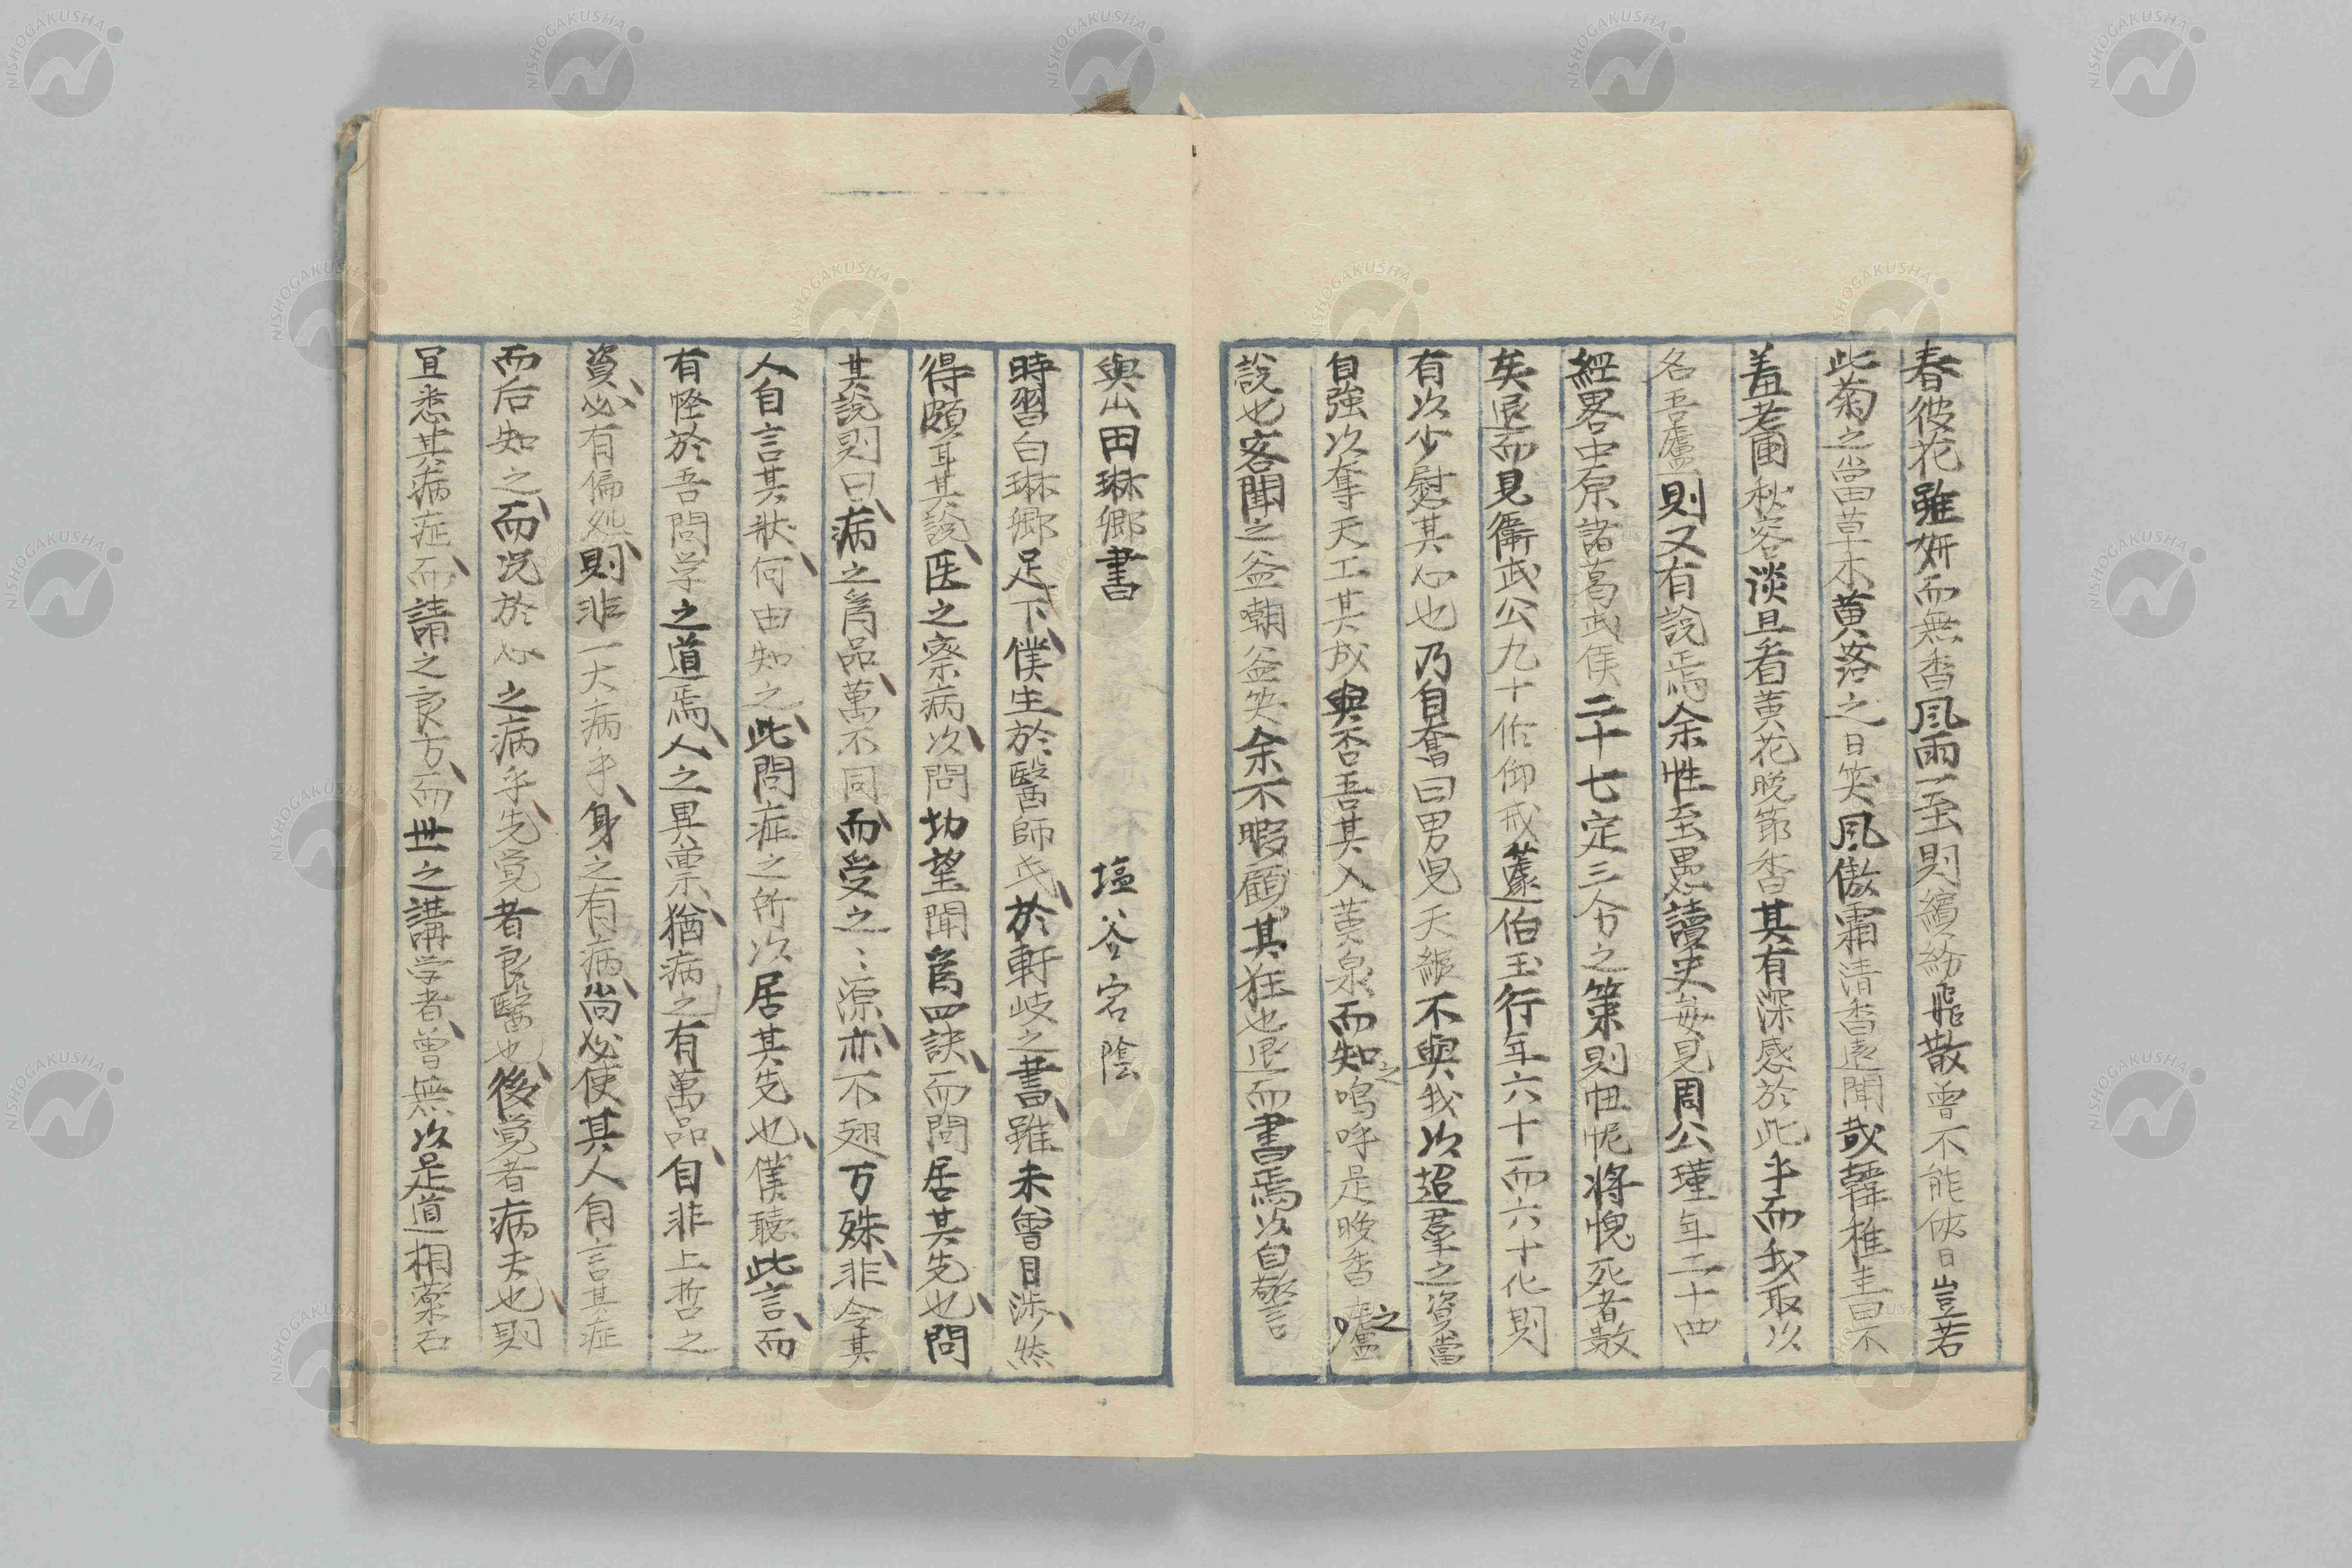 春彼花雖妍而無香風雨一至則繽紛飛散曾不能俠日豈若
此菊之當草木黄落之日笑風傲霜清香遠聞哉韓稚圭曰不
羞老圃秋容談且看黄花晩節香其有深感於此乎而我取以
名吾廬則又有說焉余性至愚讀史每見周公瑾年二十四
經畧中原諸葛武侯二十七定三分之策則忸怩將愧死者数
矣退而見衛武公九十作仰戒蘧伯玉行年六十而六十化則
有以少慰其心也乃自奮曰男児天縦不與我以超羣之資當
自強以奪天工其成與否吾其入黄泉而知之嗚呼是晩香之廬
說也客聞之益嘲益笑余不暇顧其狂也退而書焉以自警
與山田琳鄉書
塩谷宕陰
時習白琳鄉足下僕生於醫師氏於軒歧之書雖未曾目渉然
得頗耳其說医之察病以問切望聞為四訣而問居其先也問
其說則曰病之為品萬不同而受之〻源亦不翅万殊非令其
人自言其狀何由知之此問症之所以居其先也僕聽此言而
有怪於吾問学之道焉人之異禀猶病之有萬品自非上哲之
資必有偏処則非一大病乎身之有病尚必使其人自言其症
而后知之而况於心之病乎先覚者良醫也後覚者病夫也則
宜悉其病症而請之良方而世之講学者曽無以是道相薬石